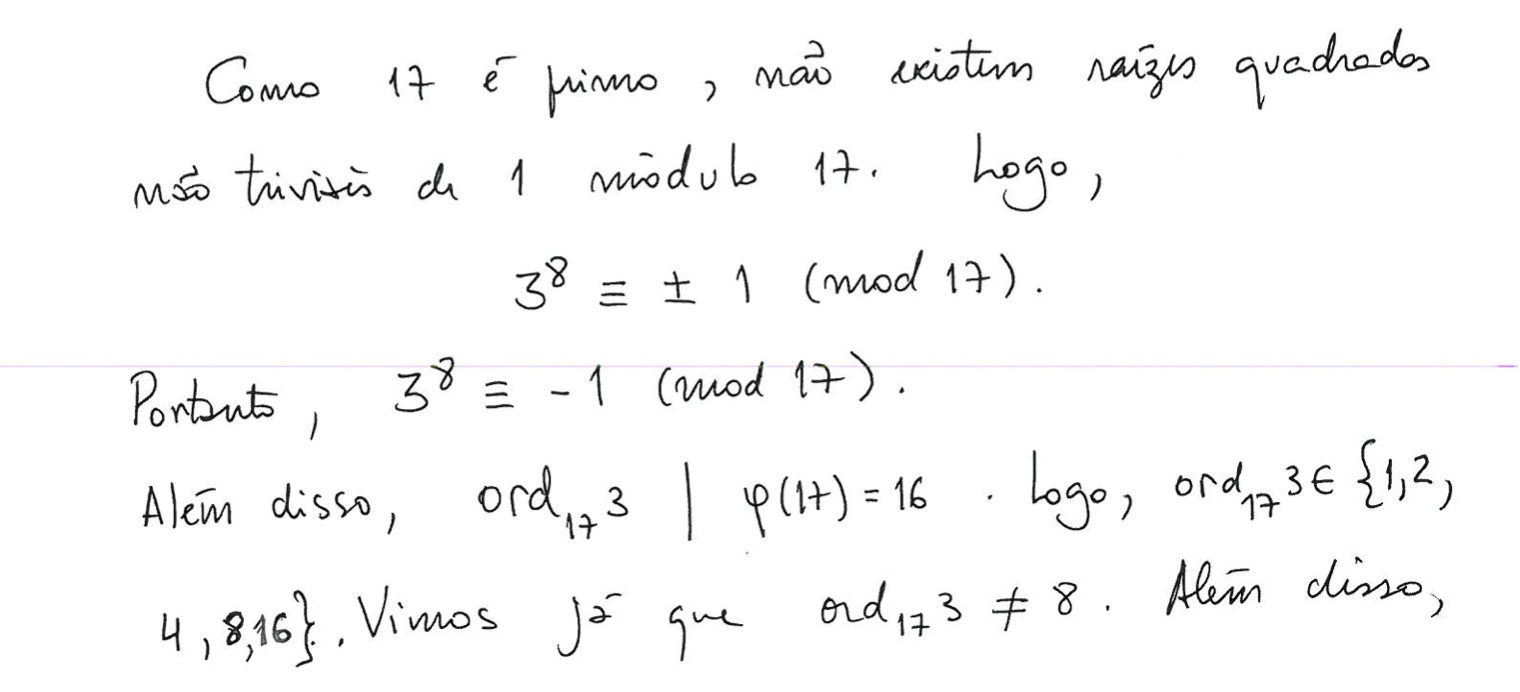 Como 17 é primo, não existem raízes quadradas
não triviais de 1 módulo 17. Logo,
3⁸ ≡ ± 1 (mod 17).
Portanto, 3⁸ ≡ -1 (mod 17).
Além disso, ord₁₇ 3 | φ(17) = 16. Logo, ord₁₇ 3 ∈ {1,2,
4,8,16}. Vimos já que ord₁₇ 3 ≠ 8. Além disso,